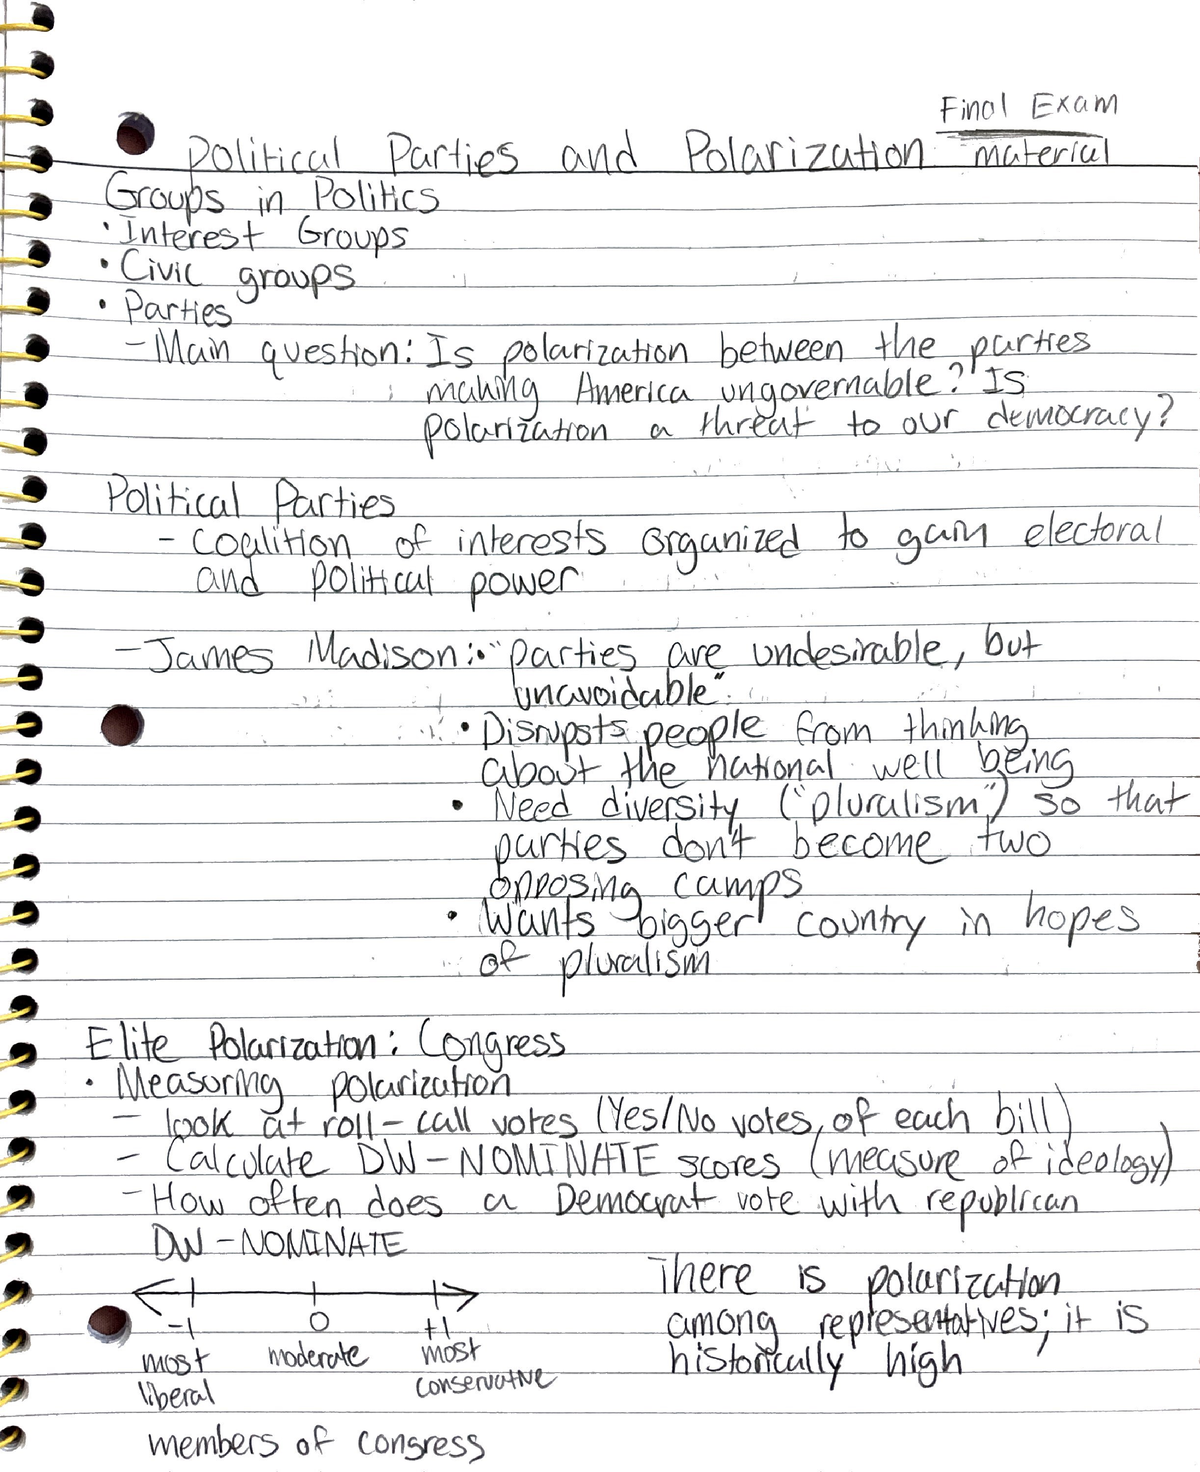 Final Exam
Political Parties and Polarization material
Groups in Politics
• Interest Groups
• Civic groups
• Parties
- Main question: Is polarization between the parties
making America ungovernable? Is
polarization a threat to our democracy?
Political Parties
- Coalition of interests organized to gain electoral
and political power
- James Madison: • "parties are undesirable, but
unavoidable"
• Disrupsts people from thinking
about the national well being
• Need diversity ("pluralism") so that
parties don't become two
opposing camps
• Wants bigger country in hopes
of pluralism
Elite Polarization: Congress
• Measuring polarization
- look at roll-call votes (Yes/No votes of each bill)
- Calculate DW-NOMINATE scores (measure of ideology)
- How often does a Democrat vote with republican
DW-NOMINATE
There is polarization
among representatives; it is
historically high
-1 0 +1
most moderate most
liberal conservative
members of congress